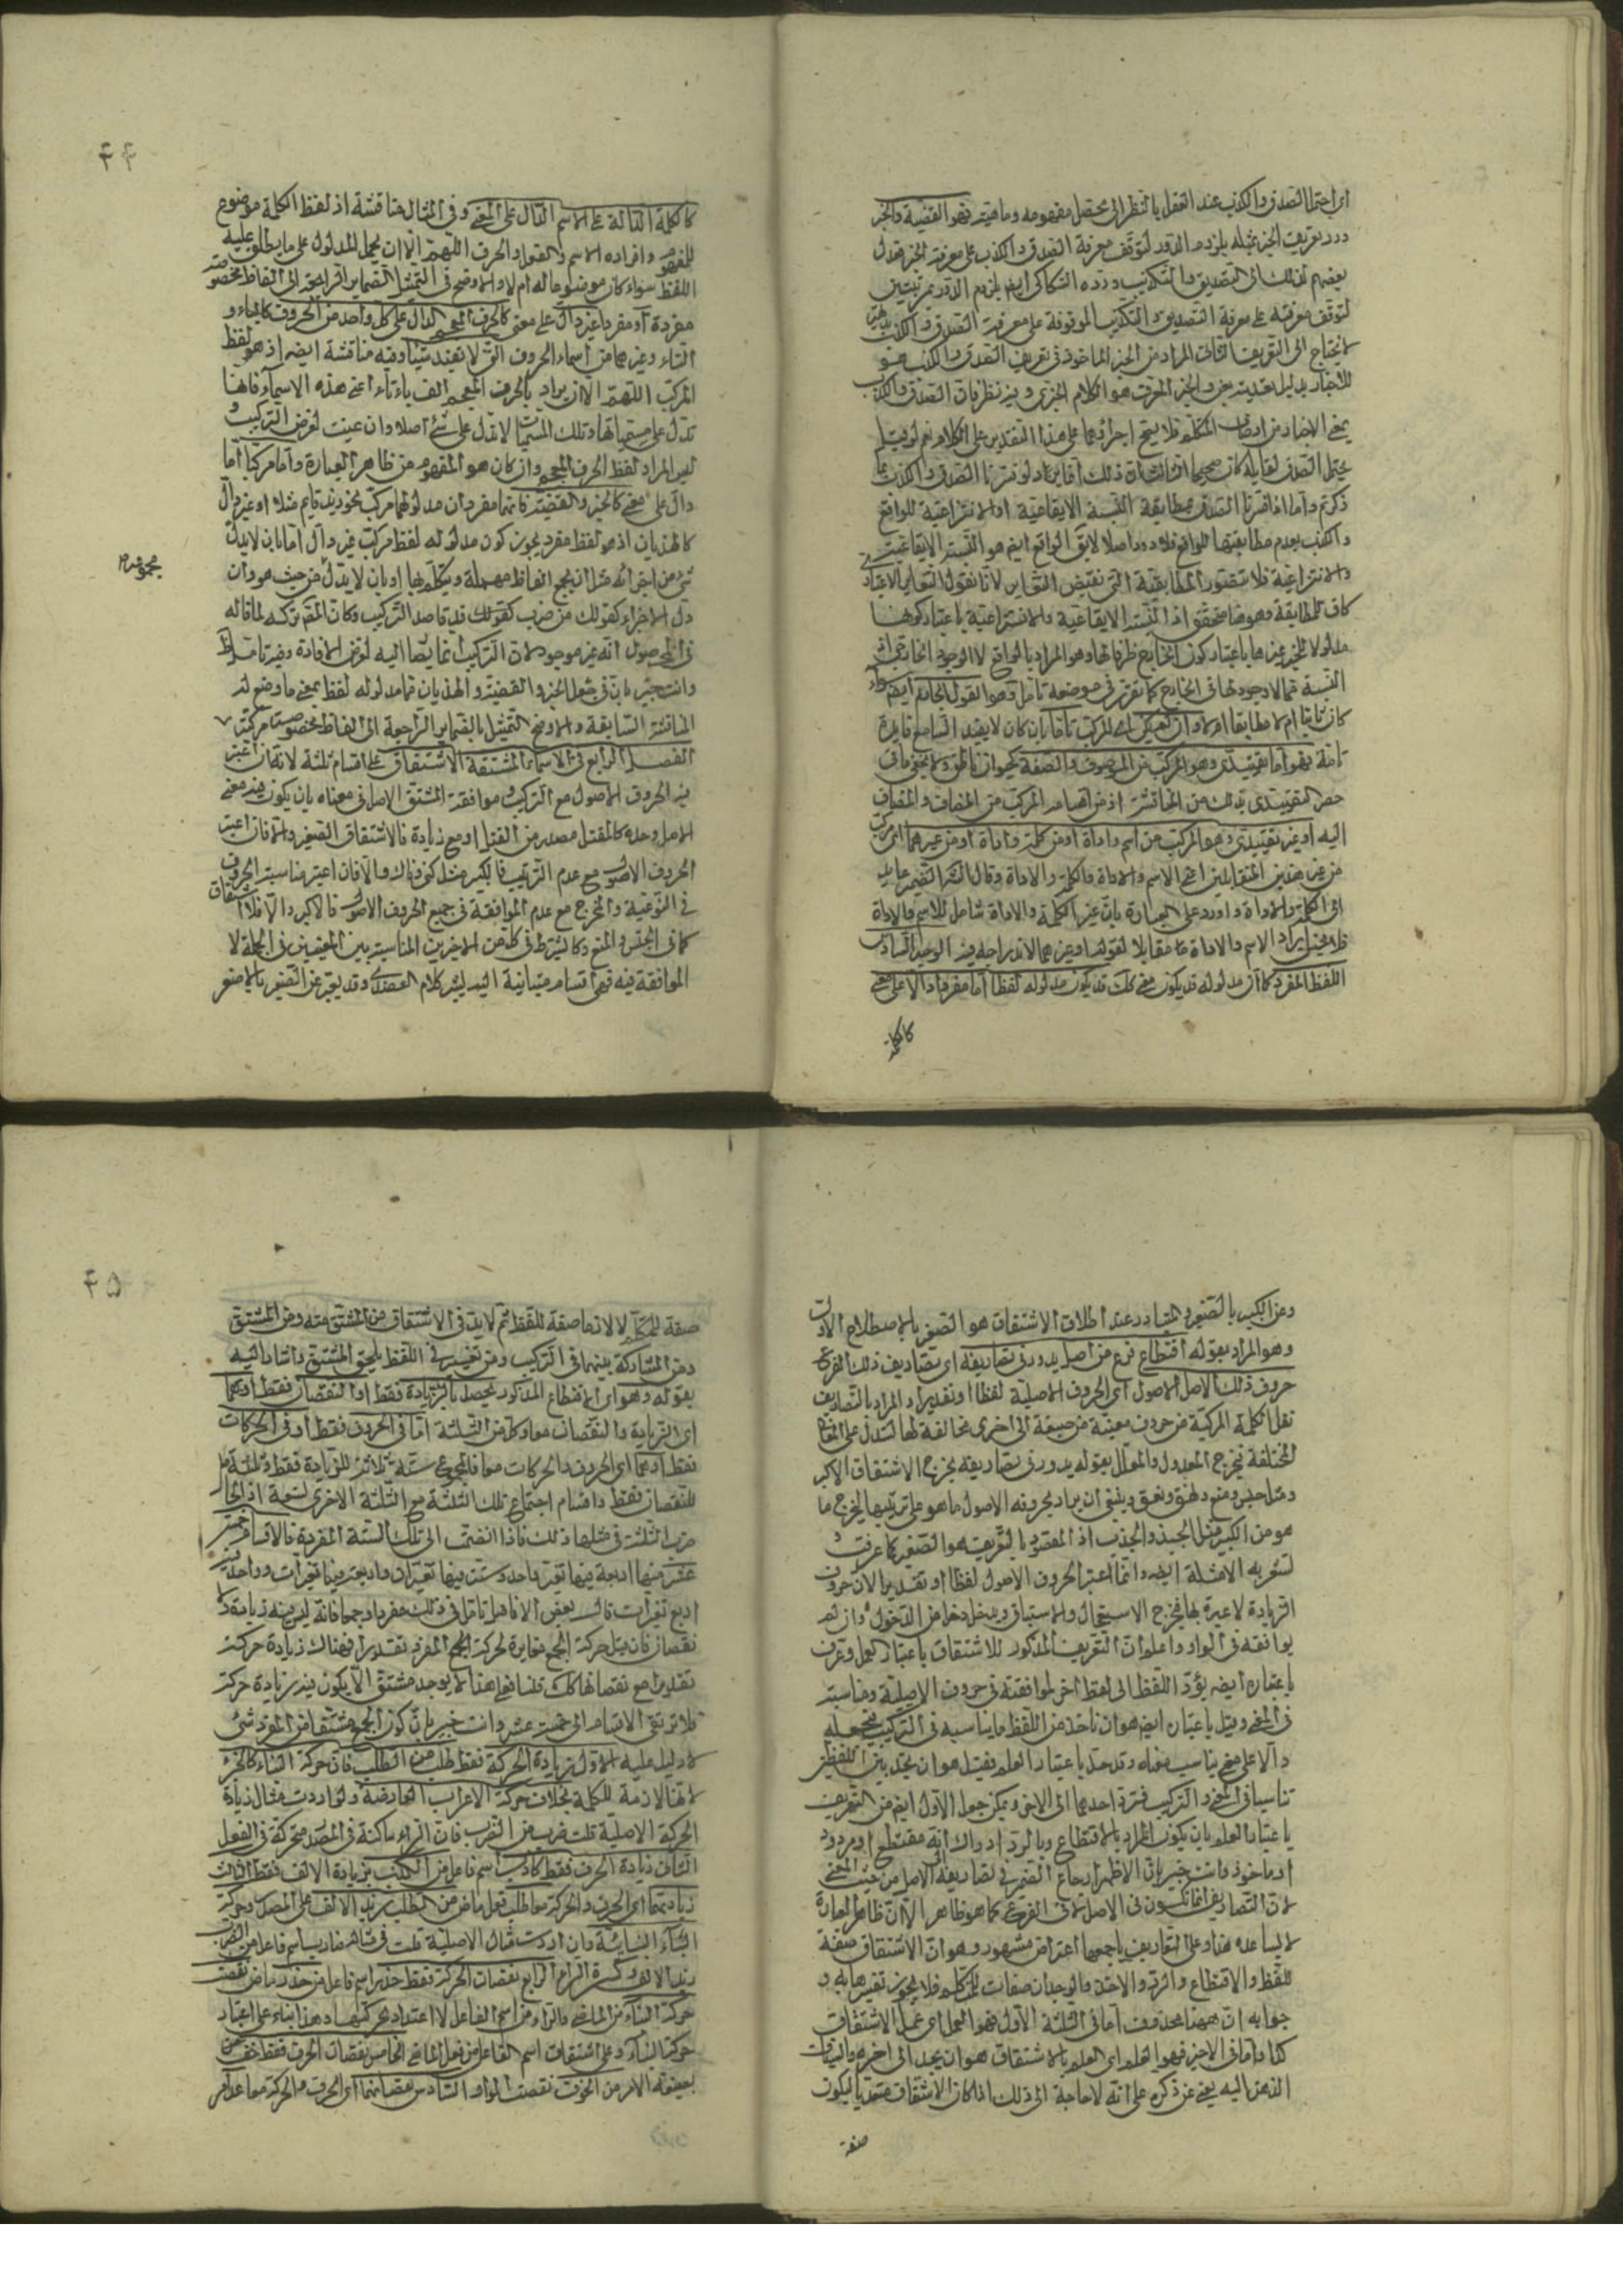 اى احتمال الصدق والكذب عند العقل بالنظر الى محصل مفهومه وماهيته فهو القضية والخبر
ورد تعريف الخبر بمثله يلزوم الدور لتوقف معرفة الصدق والكذب على معرفة الخبر فعدل
بعضهم لذلك الى التصديق والتكذيب ورده السكاكى ايضا يلزوم الدور بمرتبتين
لتوقف معرفته على معرفة التصديق والتكذيب الموقوفة على معرفة الصدق والكذب
لا يحتاج الى التعريف الثانى المراد من الخبر الماخوذ فى تعريف الصدق والكذب هو
الاخبار بدليل تعديته بعن والخبر المعرف هو الكلام الخبرى وفيه نظر فان الصدق والكذب
بمعنى الاخبار من اوصاف المتكلم فلا يصح اجراؤهما على هذا التقدير على الكلام نعم لو قيل
يحتمل الصدق لقايله كان صحيحا
ذكرتم واما اذا فسرنا الصدق بمطابقة النسبة الايقاعية او الانتزاعية للواقع
والكذب بعدم مطابقتها للواقع فلا دور اصلا لا يق الواقع ايضا هو النسبة الايقاعية
والانتزاعية فلا يتصور المطابقة التى تقتضى التغاير لانا نقول التغاير الاعتبارى
كاف للمطابقة وهو هنا متحقق اذ النسبة الايقاعية والانتزاعية باعتبار كونها
مدلولا للخبر غيرها باعتبار كون الخارج ظرفا لها وهو المراد بالواقع لا الوجود الخارجى
النسبة مما لا وجود لها فى الخارج كما تقرر فى موضعه تامل وهو القول الجازم ايضا سواء
كان ثابتا ام لا مطابقا ام لا وان لم يكن اى المركب تاما بان كان لا يفيد السامع فايدة
تامة فهو اما تقييدى وهو المركب من الموصوف والصفة كحيوان ناطق ولا يخفى ما فى
حصر التقييدى بذلك من المناقشة اذ من اقسامه المركب من المضاف والمضاف
اليه او غير تقييدى وهو المركب من اسم واداة او من كلمة واداة او من غيرهما اى مركب
من غير هذين المتقابلين اعنى الاسم والاداة والكلمة والاداة وقال الضمير عايد
الى الكلمة والاداة واورد على العبارة بان غير الكلمة والاداة شامل للاسم والاداة
فلا يحسن ايراد الاسم والاداة مقابلا لقوله او غيرهما لاندراجه فيه الوجه السادس
اللفظ المفرد كما ان مدلوله قد يكون معنى كذلك قد يكون مدلوله لفظا اما مفردا دالا على معنى
كالكلمة
٤٤
كالكلمة الدالة على الاسم الدال على المعنى وفى المثال مناقشة اذ لفظ الكلمة موضوع
للمفهوم وافراده الاسم والفعل والحرف اللهم الا ان يحمل المدلول على ما يطلق عليه
اللفظ سواء كان موضوعا له ام لا والاوضح فى التمثيل الضماير الراجعة الى الفاظ مخصوصة
مفردة او مفردا غير دال على معنى كالحرف المعجم الدال على كل واحد من الحروف كالباء و
التاء وغيرهما من اسماء الحروف التى لا يفيد شيئا وفيه مناقشة ايضا اذ هو لفظ
المركب اللهم الا ان يراد بالحرف المعجم الف باء تاء اعنى هذه الاسماء فانها
تدل على مسمياتها وتلك المسميات لا تدل على شئ اصلا وان عينت لغرض التركيب و
ليس المراد لفظ الحرف المعجم وان كان هو المفهوم من ظاهر العبارة واما مركبا اما
دال على معنى كالخبر والقضية فانهما مفردان مدلولهما مركب نحو زيد قايم مثلا او غير دال
كالهذيان اذ هو لفظ مفرد يجوز كون مدلوله لفظ مركب غير دال اما بان لا يدل
شئ من اجزائه مثل ان يجمع الفاظ مهملة ويتكلم بها او بان لا يدل من حيث هو وان
مجموعه م
دل الاجزاء كقولك من ضرب كقولك قد قاصد التركيب وكان المص تركه لما قاله
فى المحصول انه غير موجود لان التركيب انما يصار اليه لغرض الافادة وفيه تامل
وانت خبير بان فى جعل الخبر والقضية والهذيان مما مدلوله لفظ بمعنى ما وضع له
المناقشة السابقة والاوضح التمثيل بالضماير الراجعة الى الفاظ مخصوصة مركبة
الفصل الرابع فى الاسماء المشتقة الاشتقاق على اقسام ثلثة لانه ان اعتبر
فيه الحروف الاصول مع التركيب وموافقة المشتق الاصل فى معناه بان يكون فيه معنى
الاصل وحده كالمقتل مصدر من القتل او مع زيادة فالاشتقاق الصغير والا فان اعتبر
الحروف الاصول مع عدم الترتيب فالكبير مثل كنى وناك والا فان اعتبر مناسبة الحروف
فى النوعية والمخرج مع عدم الموافقة فى جميع الحروف الاصول فالاكبر والا فلا اشتقاق
كما فى الحبس والمنع وكما يشترط فى كل من الاخيرين المناسبة بين المعنيين فى الجملة لا
الموافقة فيه فهى اقسام متباينة اليه يشير كلام العضدى وقد يعبر عن الصغير بالاصغر
وعن الكبير بالصغير والمتبادر عند اطلاق الاشتقاق هو الصغير بالاصطلاح الاول
وهو المراد بقوله اقتطاع فرع من اصل يدور فى تصاريفه اى تصاريف ذلك الفرع
حروف ذلك الاصل الاصول اى الحروف الاصلية لفظا او تقديرا والمراد بالتصاريف
نقل الكلمة المركبة من حروف معينة من صيغة الى اخرى مخالفة لها لتدل على المعانى
المختلفة فخرج المعدول والمعلل بقوله يدور فى تصاريفه يخرج الاشتقاق الاكبر
ومثل حبس ومنع ونهق ونعق وينبغى ان يراد بحروفه الاصول ما هو على ترتيبها ليخرج ما
هو من الكبير مثل الجبذ والجذب اذ المقصود بالتعريف هو الصغير كما عرفت و
لتشعر به الامثلة ايضا وانما اعتبر الحروف الاصول لفظا او تقديرا لان حروف
الزيادة لا عبرة بها فيخرج الاستعجال والاستباق ويدخل دخل من الدخول وان لم
يوافقه فى الواو واعلم ان التعريف المذكور للاشتقاق باعتبار العمل وعرف
باعتباره ايضا برد اللفظ الى لفظ اخر لموافقته فى حروف الاصلية ومناسبته
فى المعنى وقيل باعتباره ايضا هو ان تاخذ من اللفظ ما يناسبه فى التركيب فتجعله
دالا على معنى يناسب معناه وقد حد باعتبار العلم فقيل هو ان تجد بين اللفظين
تناسبا فى المعنى والتركيب فترد احدهما الى الاخر ويمكن جعل الاول ايضا من التعريف
باعتبار العلم بان يكون المراد بالاقتطاع وبالرد ادراك انه مقتطع او مردود
او ماخوذ وانت خبير بان الاظهر ارجاع الضمير فى تصاريفه الى الاصل من حيث المعنى
لان التصاريف انما تكون فى الاصل لا فى الفرع كما هو ظاهر الا ان ظاهر العبارة
لا يساعده هذا وعلى التعاريف باجمعها اعتراض مشهور وهو ان الاشتقاق صفة
للفظ والاقتطاع والرد والاخذ والوجدان صفات للمتكلم فلا يجوز تفسيره به و
جوابه ان ههنا محذوف اما فى الثلثة الاول فهو العمل اى عمل الاشتقاق
كذا واما فى الاخير فهو العلم اى العلم بالاشتقاق هو ان يجد الى اخره والتفات
الذهن اليه يغنى عن ذكره على انه لا حاجة الى ذلك اذا كان الاشتقاق متعديا ليكون
صفة
٤٥
صفة للمتكلم لا لازما صفة للفظ ثم لا بد فى الاشتقاق من المشتق منه ومن المشتق
ومن المشاركة بينهما فى التركيب ومن تغيير فى اللفظ يلحق المشتق واشار اليه
بقوله وهو اى الاقتطاع المذكور يحصل بالزيادة فقط او النقصان فقط او هما
اى الزيادة والنقصان معا وكل من الثلثة اما فى الحروف فقط او فى الحركات
فقط او هما اى الحروف والحركات معا فالمجموع ستة ثلاثة للزيادة فقط وثلثة
للنقصان فقط واقسام اجتماع تلك الثلثة مع الثلثة الاخرى تسعة اذ الحاصل
ضرب الثلثة فى مثلها ذلك فاذا انضمت الى تلك الستة المفردة فالاقسام خمسة
عشر منها اربعة فيها تغير واحد وست فيها تغيران واربعة فيها تغيرات وواحد فيه
اربع تغيرات قال بعض الافاضل تامل فى ذلك مفردا وجمعا فانه ليس فيه زيادة ولا
نقصان فان قيل حركة الجمع مغايرة لحركة الجمع المفرد تقديرا فهناك زيادة حركة
تقديرا مع نقصانها كذلك قلنا فعلى هذا لا يوجد مشتق الا يكون فيه زيادة حركة
فلا ترتقى الاقسام الى خمسة عشر وانت خبير بان كون الجمع مشتقا من المفرد شئ
لا دليل عليه الاول زيادة الحركة فقط طلب من الطلب فان حركة البناء كالجزء
لانها لازمة للكلمة بخلاف حركة الاعراب العارضة ولو اردت مثال زيادة
الحركة الاصلية قلت ضرب من الضرب فان الراء ساكنة فى المصدر متحركة فى الفعل
الثانى زيادة الحرف فقط كاذب اسم فاعل من الكذب بزيادة الالف فقط الثالث
زيادتهما اى الحرف والحركة معا طالب فعل ماض من الطلب زيد الالف على المصدر وحركة
الباء البنائية وان اردت مثال الاصلية قلت فى مثاله ضارب اسم فاعل من الضرب
زيد الالف وكسرة الراء الرابع نقصان الحركة فقط حذر اسم فاعل من حذر ماض نقصت
حركة البناء من الماضى والراء من اسم الفاعل لا اعتداد بحركتها وهذا بناء على اعتبار
حركة البناء وعلى اشتقاق اسم الفاعل من فعل الماضى الخامس نقصان الحرف فقط خف
بصيغة الامر من الخوف نقصت الواو السادس نقصانهما اى الحرف والحركة معا عد امر